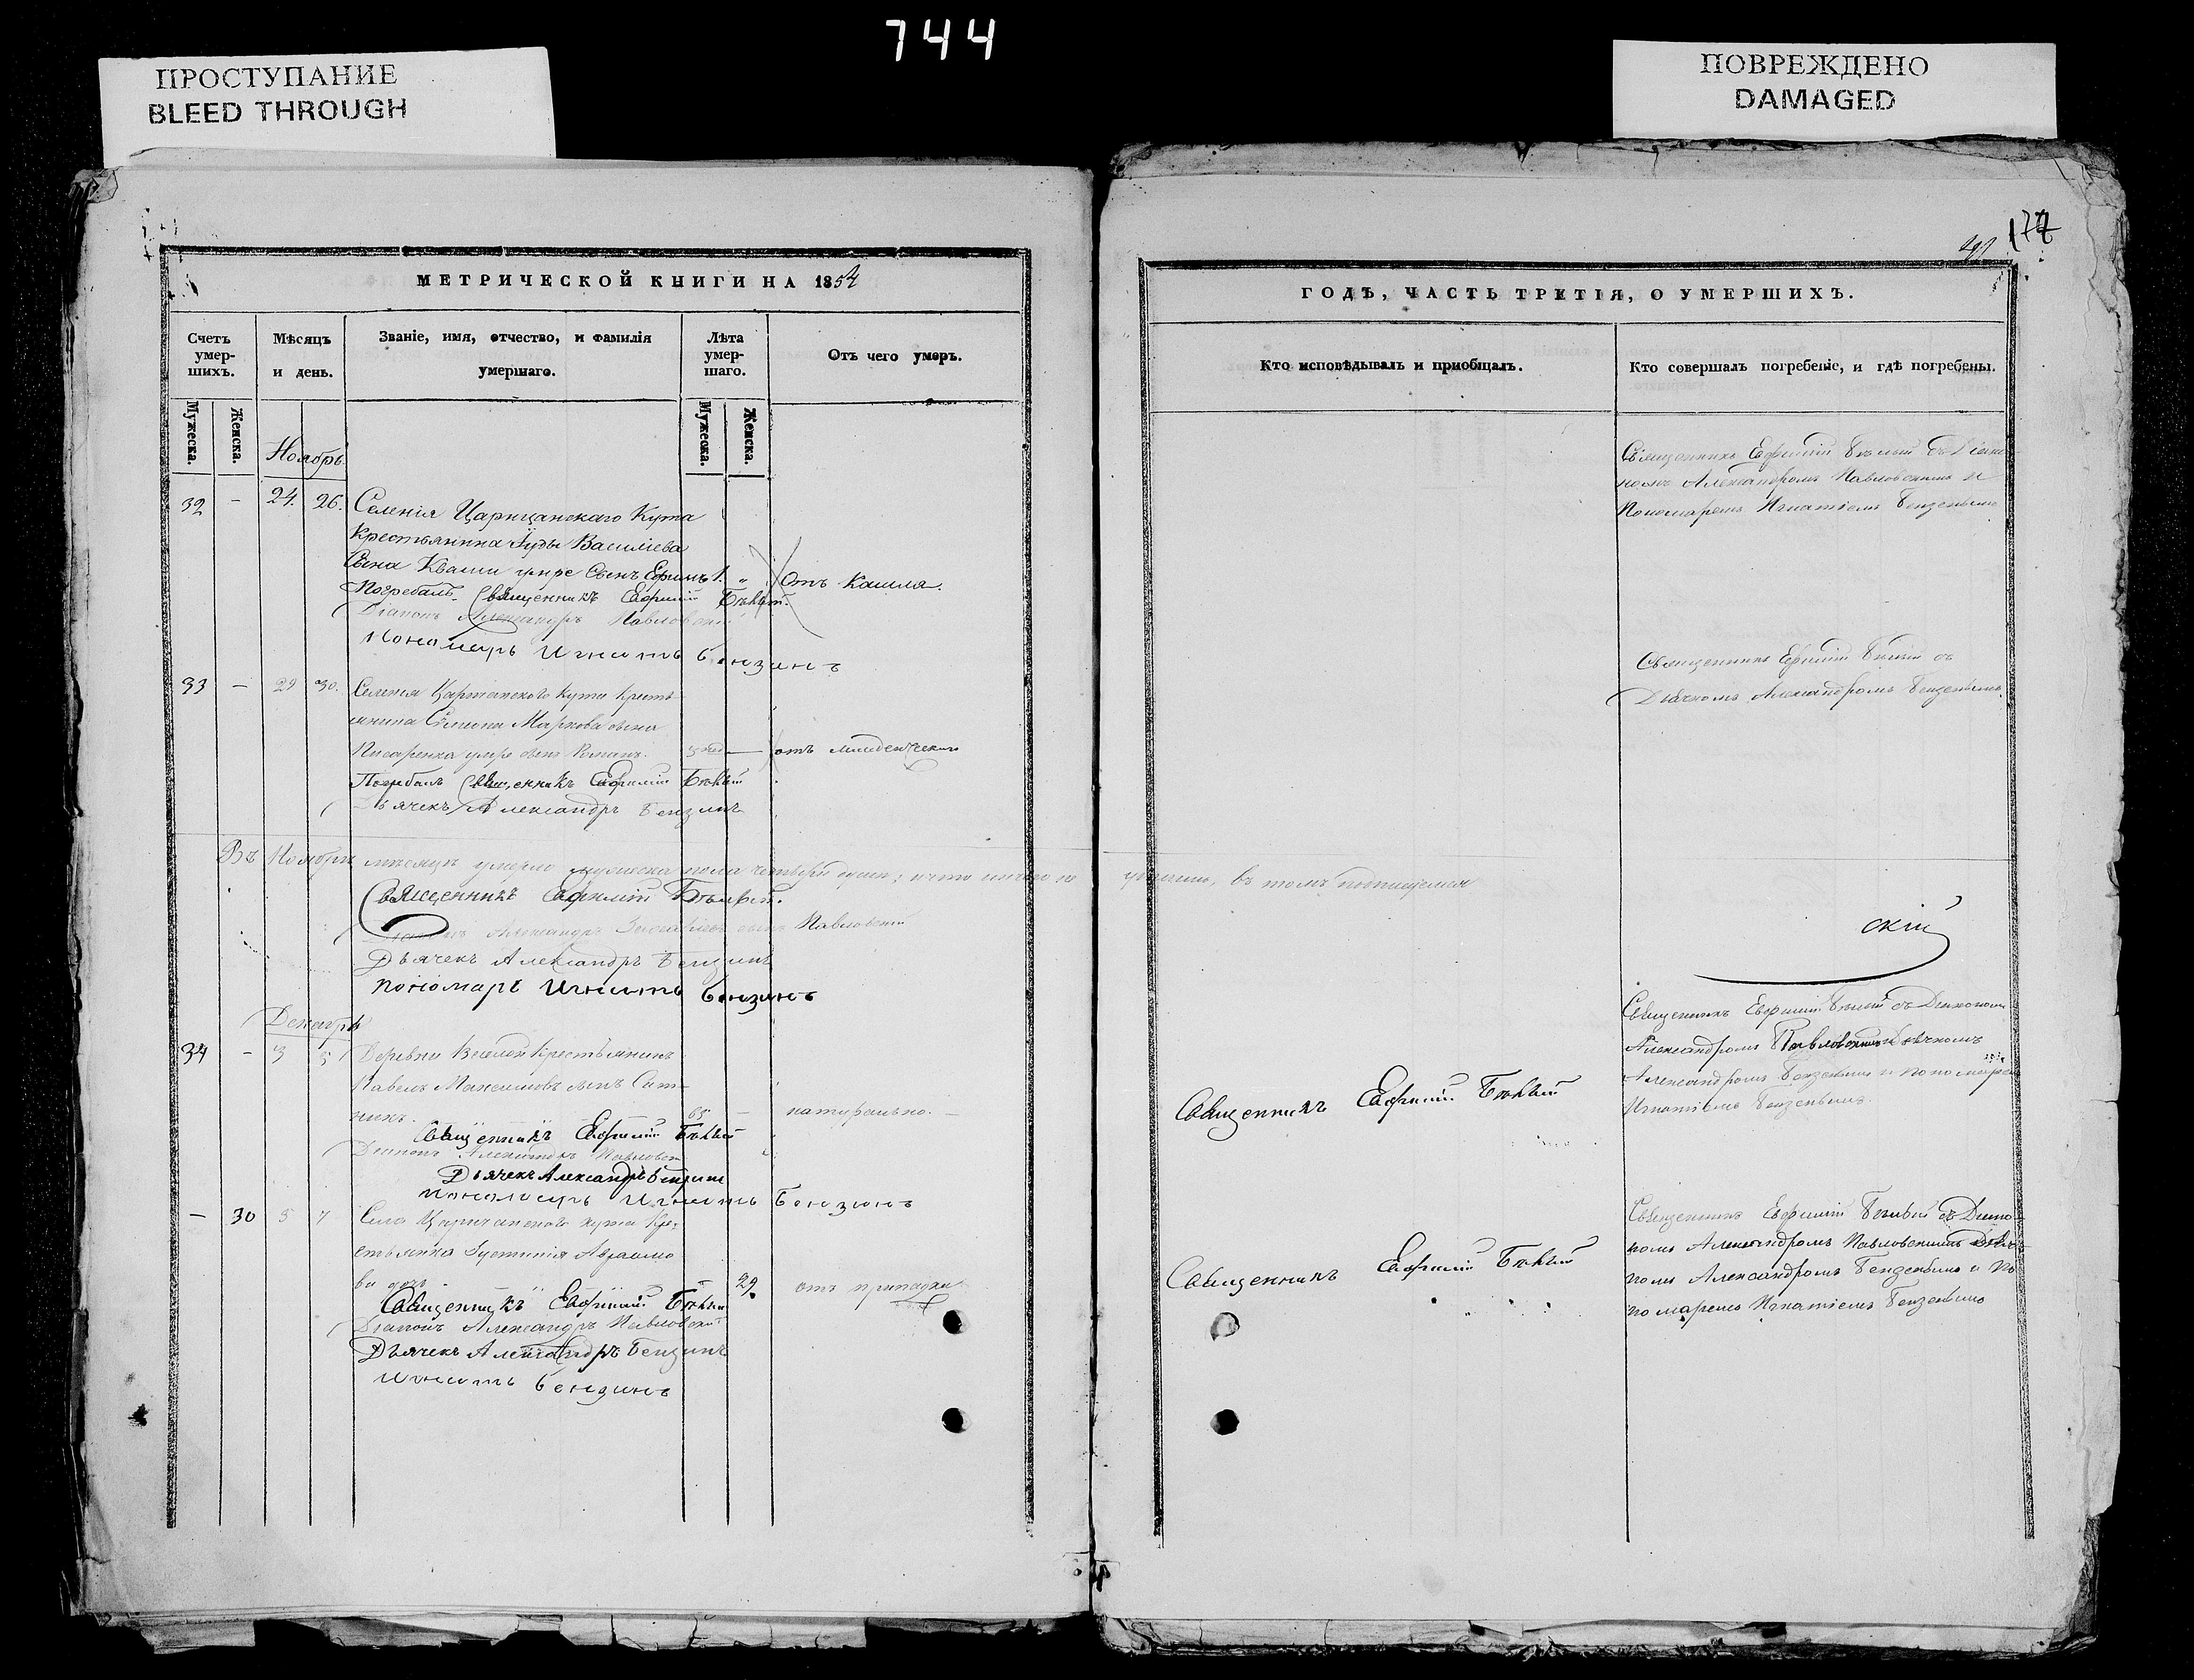 744
ПРОСТУПАНИЕ
BLEED THROUGH
ПОВРЕЖДЕНО
DAMAGED
МЕТРИЧЕСКОЙ КНИГИ НА 1854
Счетъ умер-шихъ.
Мѣсяцъ и день.
Званіе, имя, отчество, и фамилія умершаго.
Лѣта умер-шаго.
Отъ чего умеръ.
Мужеска.
Женска.
Мужеска.
Женска.
Ноябрь
32 - 24. 26. Селенія Царичанскаго Кута
Крестьянина Іуды Василіева
Сына Кваши умре Сынъ Ефимъ 1. " Отъ Кашля.
Погребалъ Священникъ Евфимій Бѣлый.
Діаконъ Александръ Павловскій
Пономарь Игнатъ Бензинъ
33 - 29 30. Селенія Царичанскаго Кута кресть-
янина Симеона Маркова сына
Писаренка умре сынъ Романъ. 5 нед — отъ младенческаго
Погребалъ Священникъ Евфимій Бѣлый
Дьячекъ Александръ Бензинъ
Въ Ноябрѣ мѣсяцѣ умерло мужеска пола четыре души; и что никого не
Священникъ Евфимій Бѣлый.
Діаконъ Александръ сынъ Павловскій
Дьячекъ Александръ Бензинъ
Пономарь Игнатъ Бензинъ
Декабрь
34 - 3 5 Деревни Веселой Крестьянинъ
Павелъ Максимовъ сынъ Сит-
никъ. 65 — натурально. —
Священникъ Евфимій Бѣлый
Діаконъ Александръ Павловскій
Дьячекъ Александръ Бензинъ
Пономарь Игнатъ Бензинъ
— 30 5 7 Села Царичанскаго кута Кре-
стьянка Іустинія Авраамо
ва дочь — 29. отъ припадка
Священникъ Евфимій Бѣлый
Діаконъ Александръ Павловскій
Дьячекъ Александръ Бензинъ
Игнатъ Бензинъ
177
ГОДЪ, ЧАСТЬ ТРЕТІЯ, О УМЕРШИХЪ.
Кто исповѣдывалъ и приобщалъ.
Кто совершалъ погребеніе, и гдѣ погребены.
Священникъ Евфимій Бѣлый съ Діако
номъ Александромъ Павловскимъ и
Пономаремъ Игнатіемъ Бензенымъ
Священникъ Ефимій Бѣлый съ
Дьячкомъ Александромъ Бензенымъ.
въ томъ подписуемся
скій
Священникъ Евфимій Бѣлый съ Діакономъ
Александромъ Павловскимъ Дьячкомъ
Александромъ Бензенымъ и пономаремъ
Игнатіемъ Бензенымъ.
Священникъ Евфимій Бѣлый
Священникъ Евфимій Бѣлый съ Діако-
номъ Александромъ Павловскимъ Дьяч-
комъ Александромъ Бензенымъ и По
номаремъ Игнатіемъ Бензенымъ
Священникъ Евфимій Бѣлый